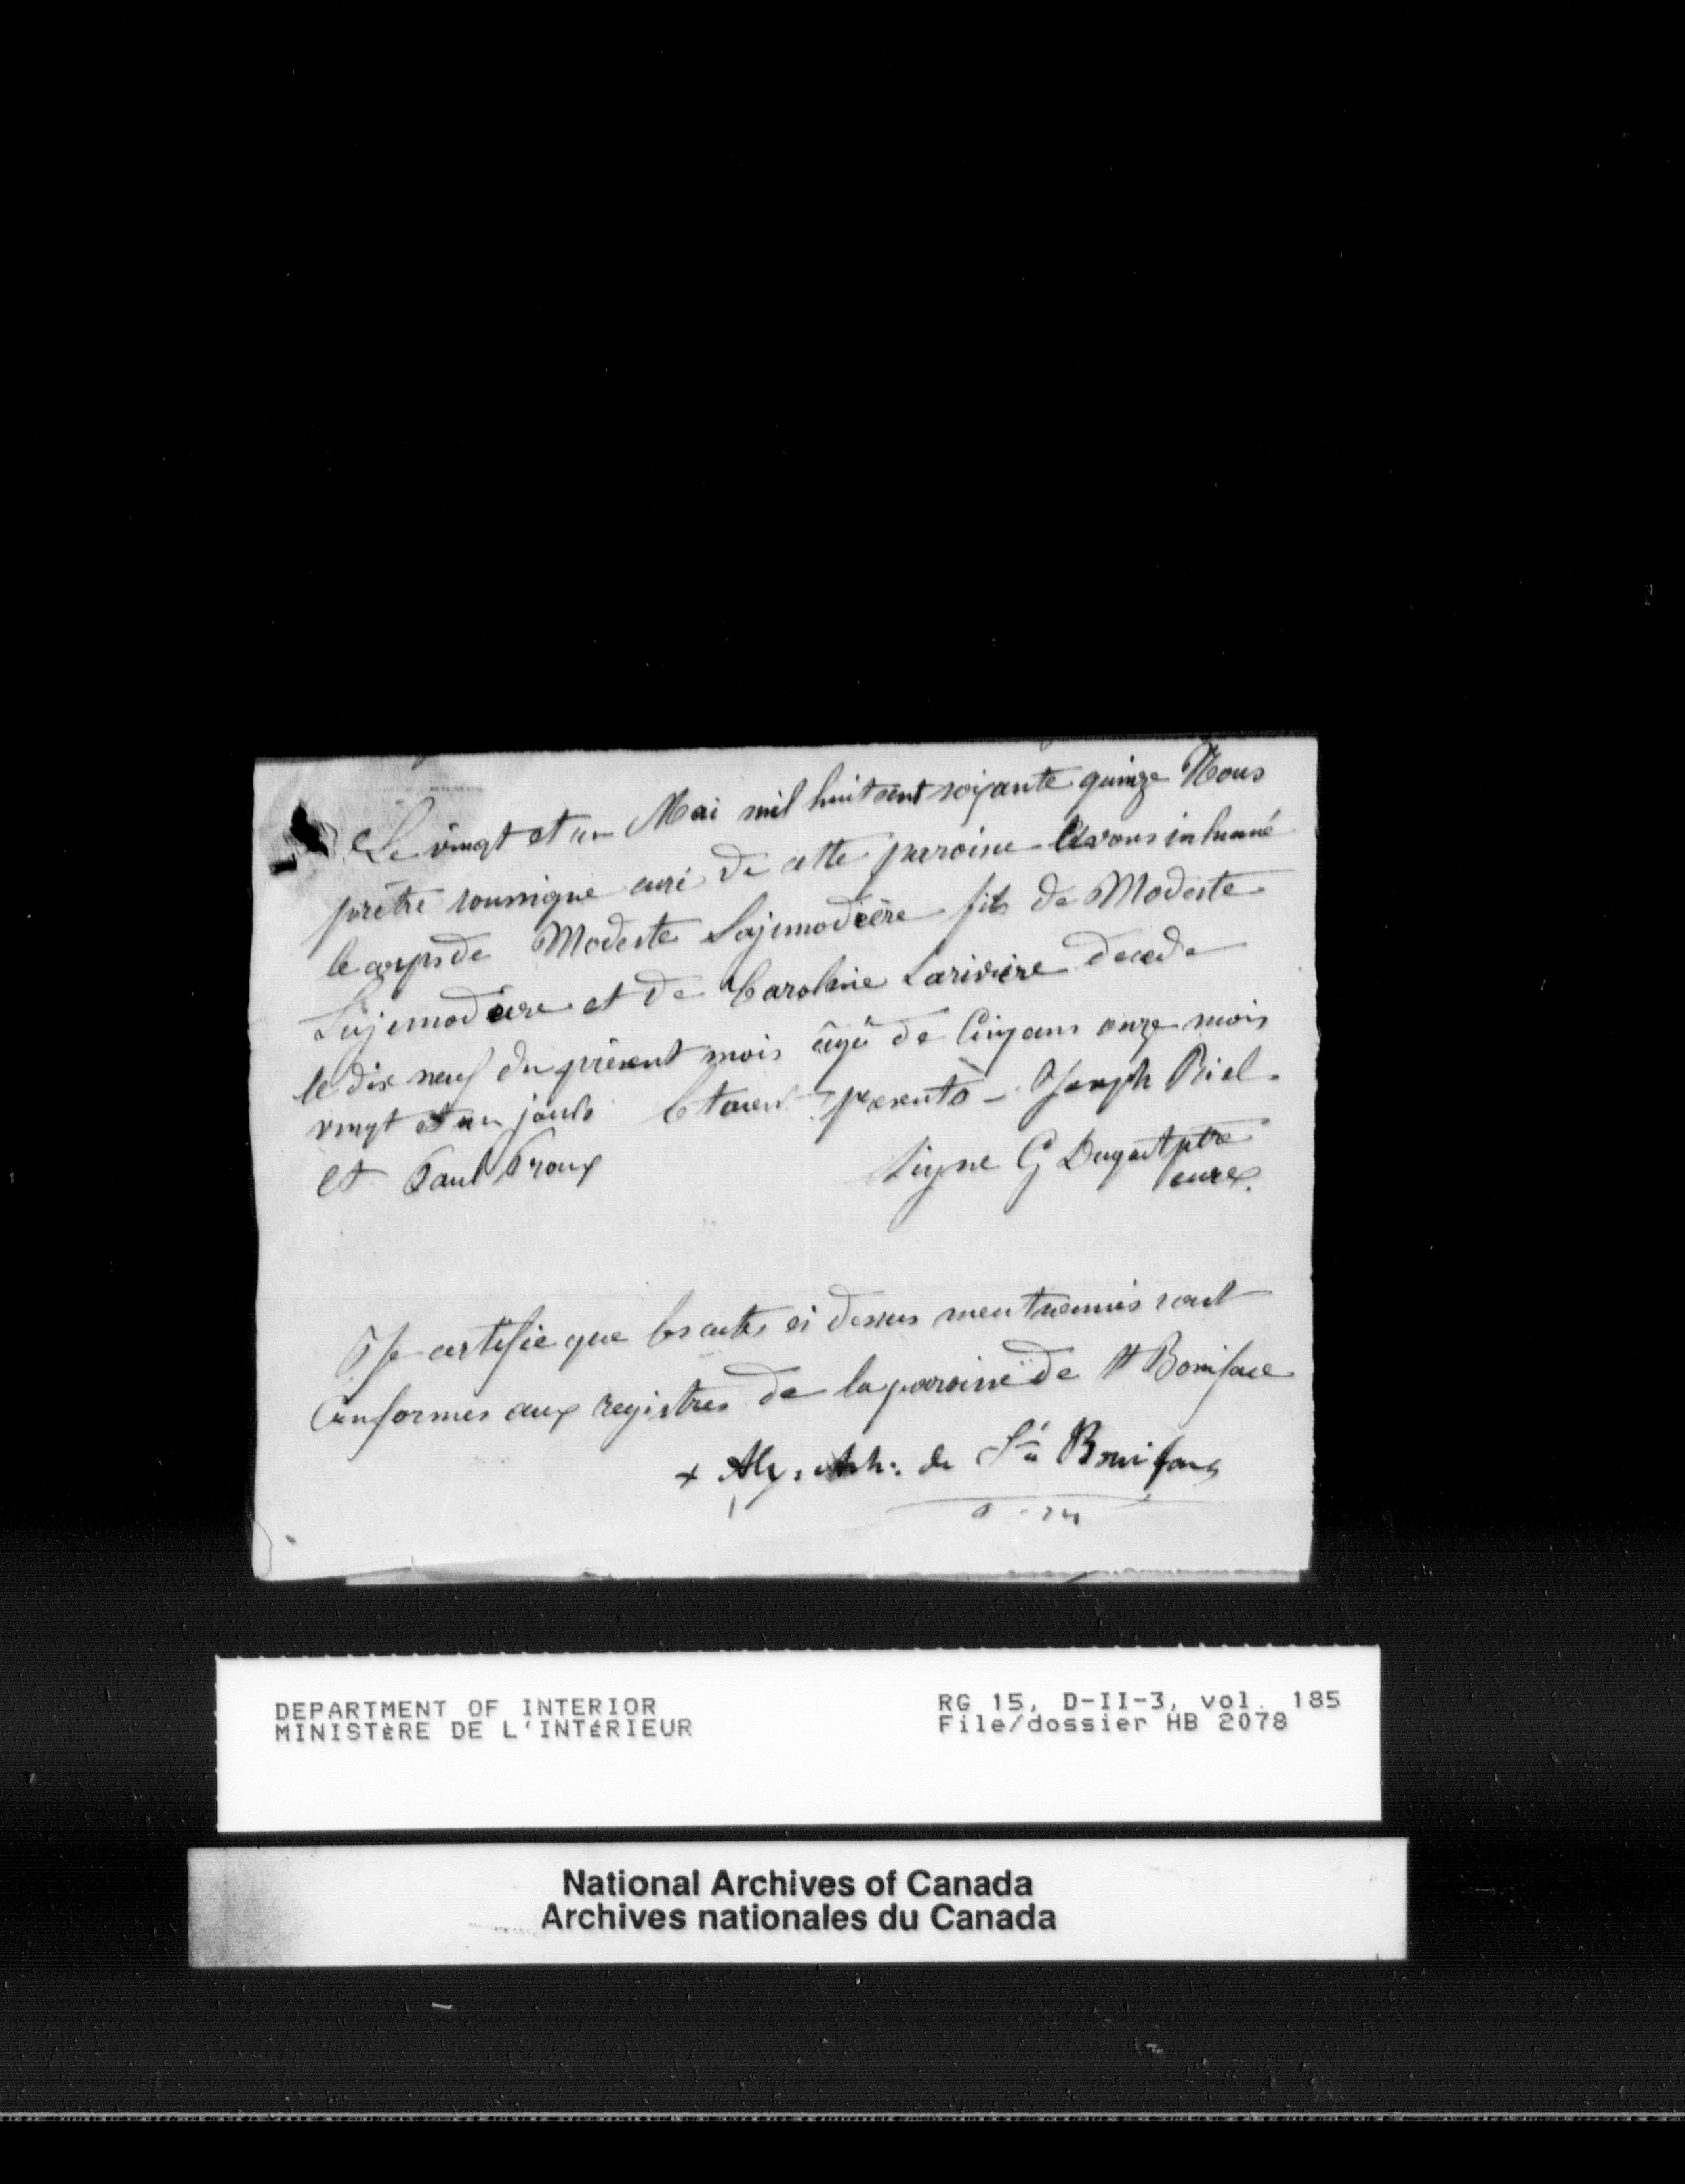 Le vingt et un Mai mil huit cent soixante quinze Nous
prêtre soussigne curé de cette paroisse Avons inhumé
le corps de Modeste Lajimodière fils de Modeste
Lajimodière et de Caroline Larivière decede
le dix neuf du présent mois âgé de Cinq ans onze mois
vingt et un jours Etaient presents - Joseph Riel.
et Paul Proux
Signe G Dugast ptre
curé.
Je certifie que les actes ci dessus mentionnés sont
Conformes aux registres de la paroisse de St Boniface
+ Alex: Arch: de St Boniface
o.m.i
DEPARTMENT OF INTERIOR
MINISTÈRE DE L'INTÉRIEUR
RG 15, D-II-3, vol. 185
File/dossier HB 2078
National Archives of Canada
Archives nationales du Canada